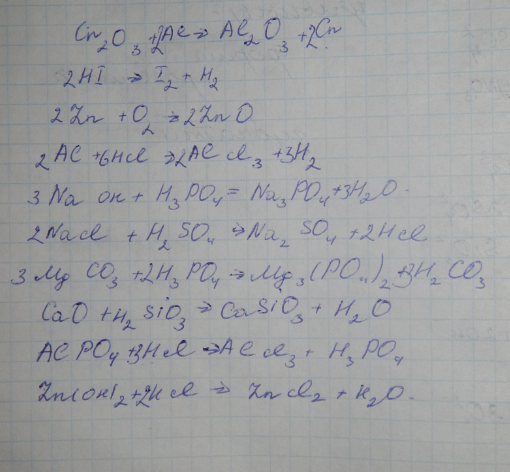 Cr₂O₃ + 2Al → Al₂O₃ + 2Cr
2HI → I₂ + H₂
2Zn + O₂ → 2ZnO
2Al + 6HCl → 2AlCl₃ + 3H₂
3NaOH + H₃PO₄ = Na₃PO₄ + 3H₂O.
2NaCl + H₂SO₄ → Na₂SO₄ + 2HCl
3MgCO₃ + 2H₃PO₄ → Mg₃(PO₄)₂ + 3H₂CO₃
CaO + H₂SiO₃ → CaSiO₃ + H₂O
AlPO₄ + 3HCl → AlCl₃ + H₃PO₄
Zn(OH)₂ + 2HCl → ZnCl₂ + H₂O.